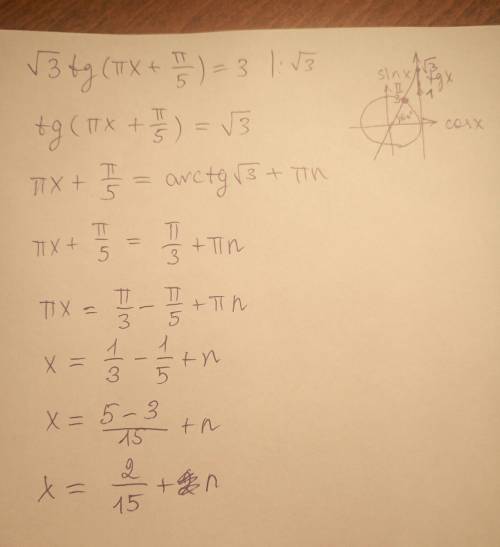 √3 tg(πx + π/5) = 3 |: √3
tg(πx + π/5) = √3
πx + π/5 = arctg√3 + πn
πx + π/5 = π/3 + πn
πx = π/3 − π/5 + πn
x = 1/3 − 1/5 + n
x = (5−3)/15 + n
x = 2/15 + n
sinx
√3
tgx
π/3
1
60°
cosx